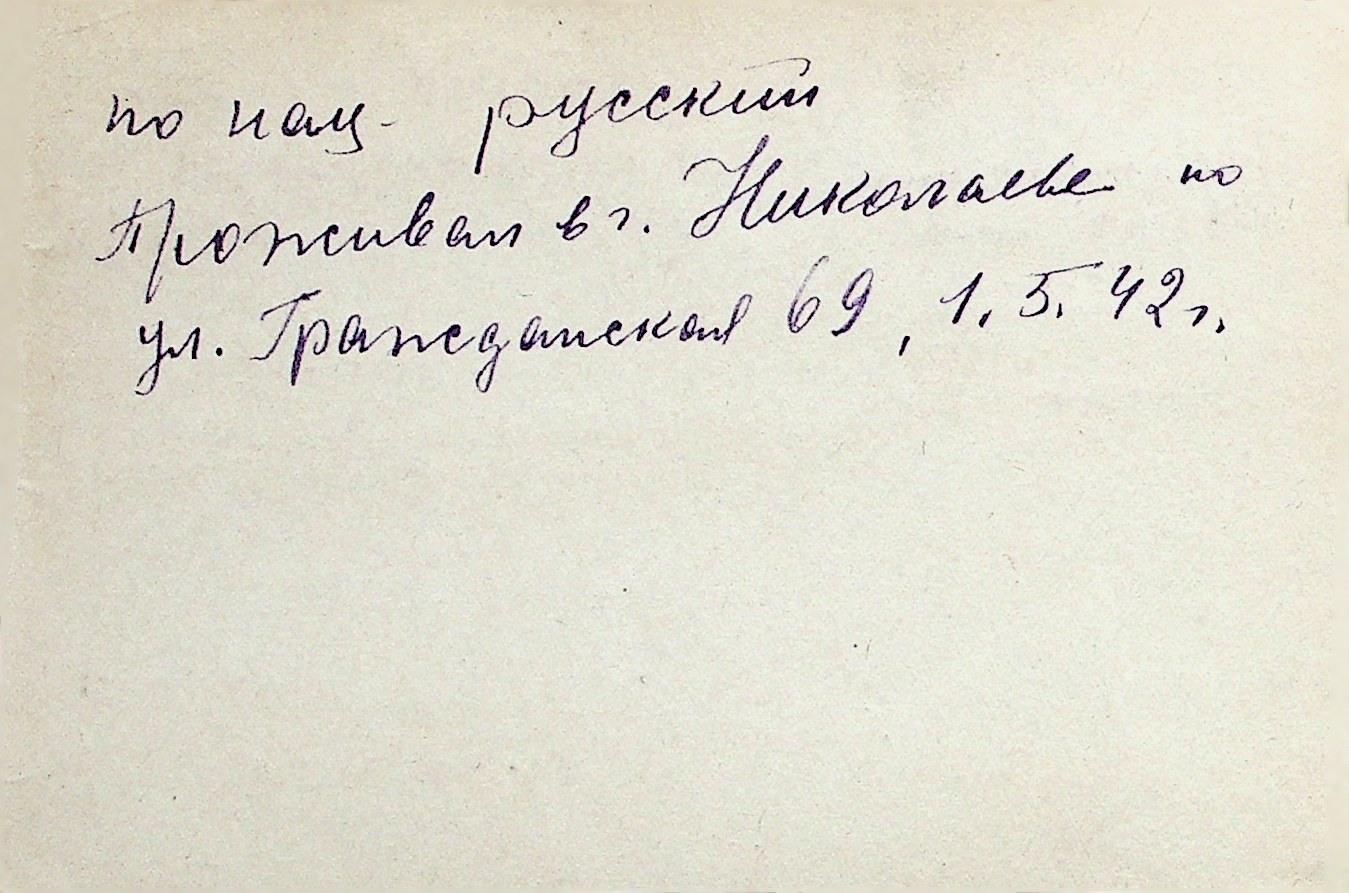 по нац. русский
Проживал в г. Николаеве по
ул. Гражданская 69, 1.5.42г.